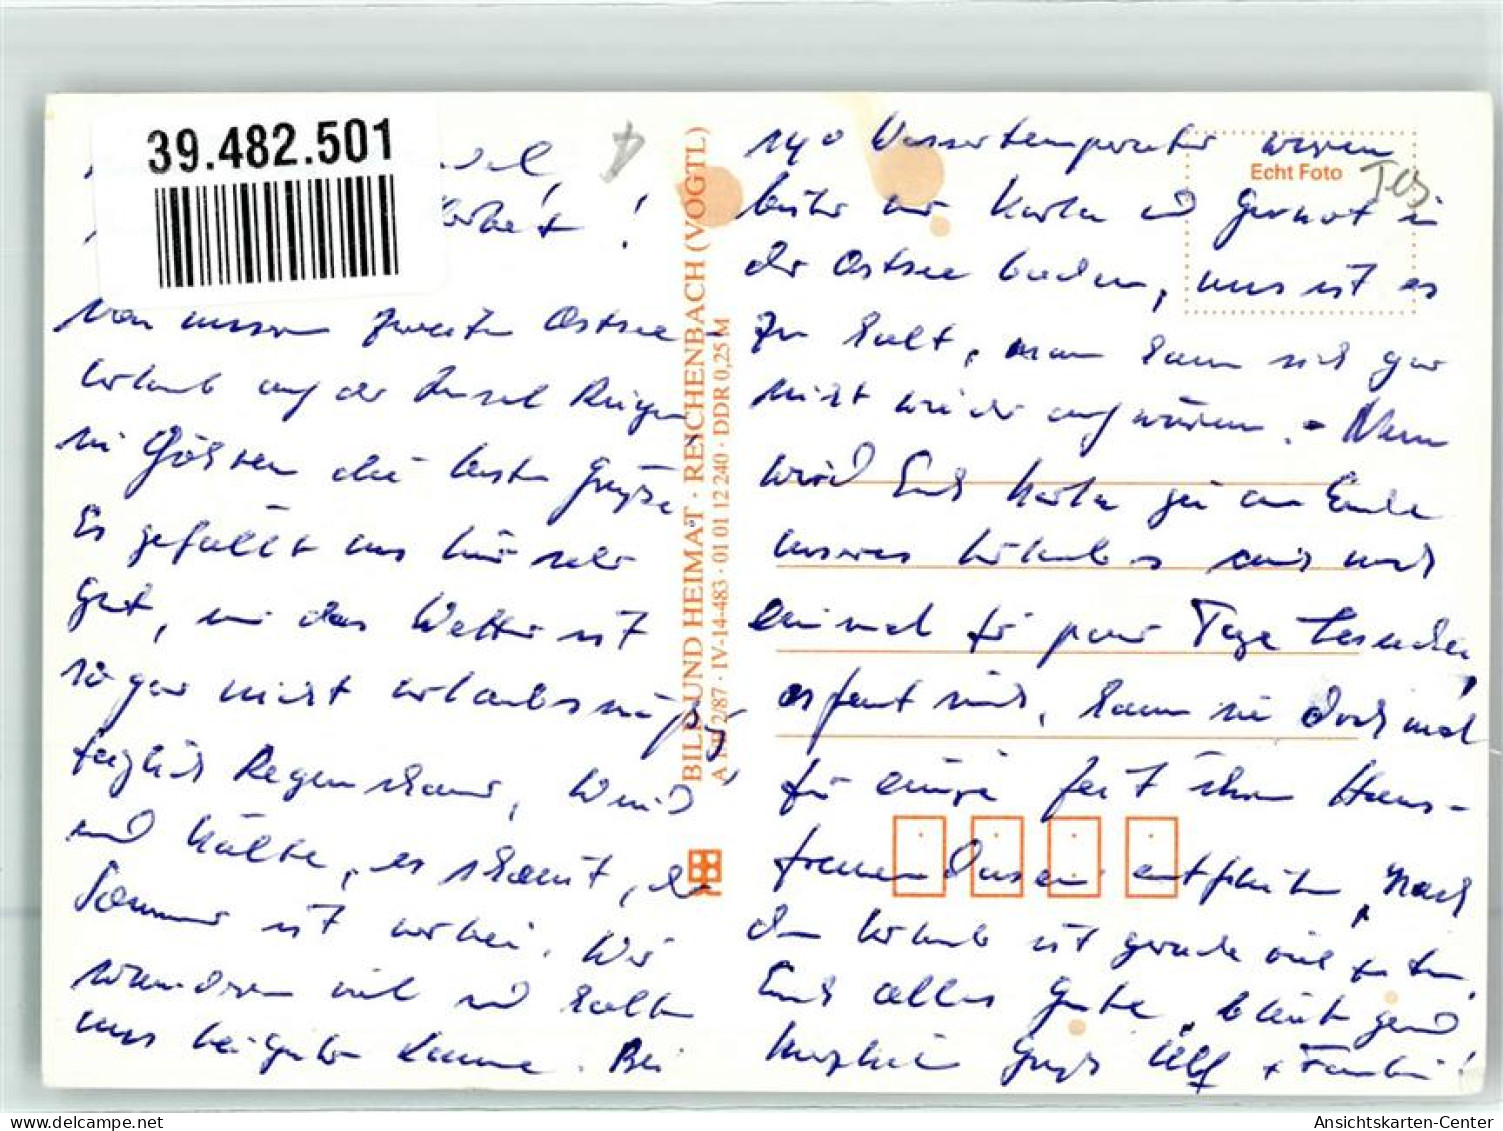 39.482.501
!
Von unserem zweiten Ostsee-
urlaub auf der Insel Rügen
in Göhren die besten Grüße.
Es gefällt uns hier sehr
gut, nur das Wetter ist
sogar nicht urlaubsmäßig,
täglich Regenschauer, Wind
und Kälte, es scheint, der
Sommer ist vorbei. Wir
wandern viel und halten
uns bei guter Laune. Bei
14° Wassertemperatur waren
bisher nur Karla und Gernot in
der Ostsee baden, uns ist es
zu kalt, man kann sich gar
nicht wieder aufwärmen. - Nun
wird Euch Karla ja am Ende
unseres Urlaubes auch noch
einmal für paar Tage besuchen,
es freut mich, kann sie doch mal
für einige Zeit ihrem Haus-
frauendasein entfliehen. Nach
dem Urlaub ist gerade viel zu tun.
Euch alles Gute, bleibt gesund
herzliche Grüße Ulf + Familie!
BILD UND HEIMAT · REICHENBACH (VOGTL)
2/87 · IV-14-483 · 01 01 12 240 · DDR 0,25 M
Echt Foto
Ansichtskarten-Center